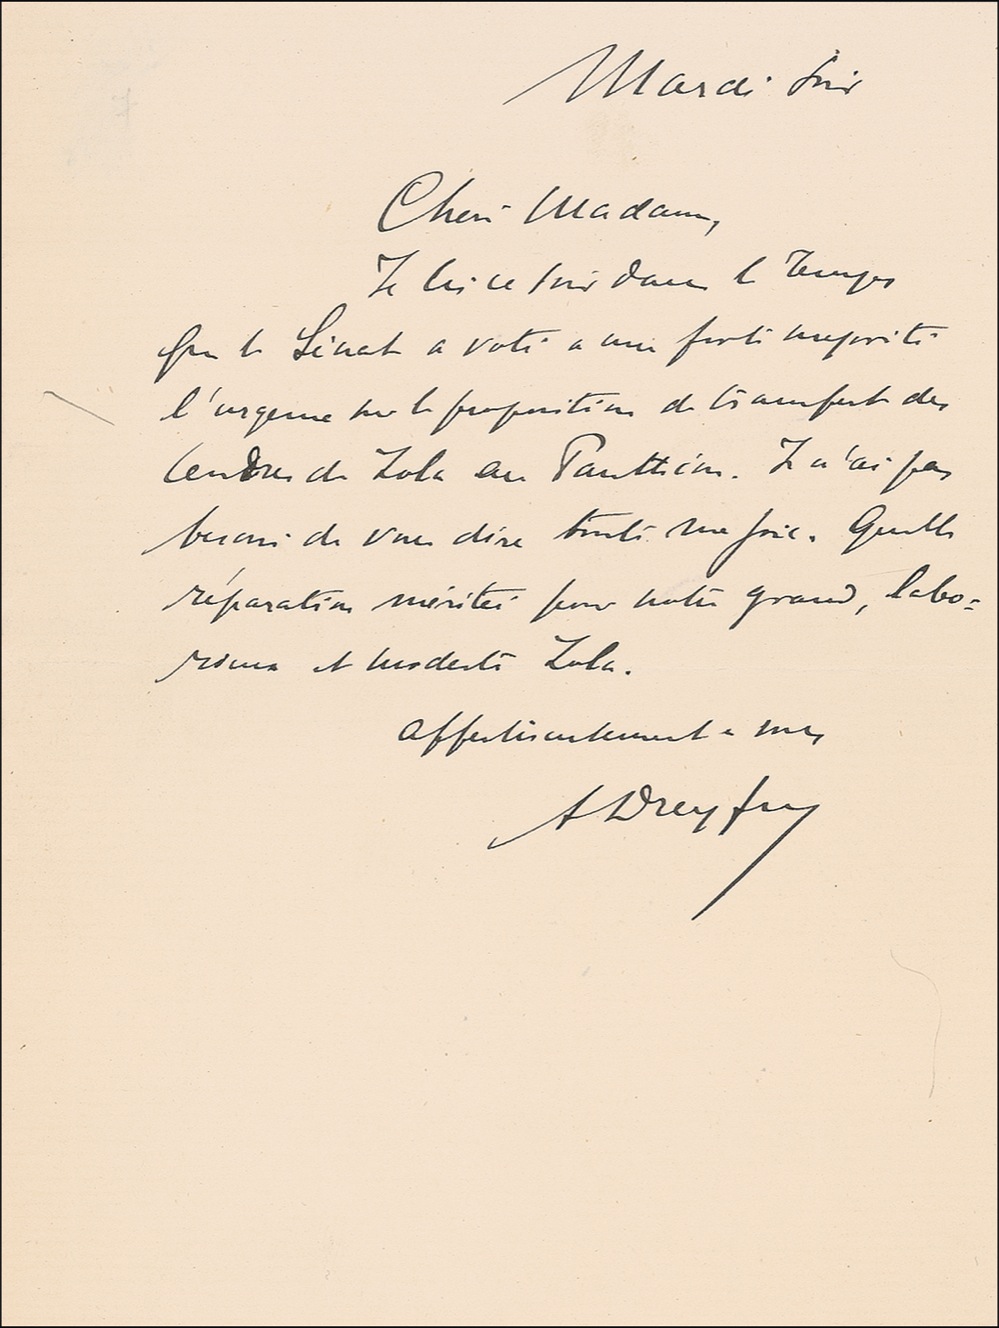 Mardi soir
Chère Madame,
Je lis ce soir dans le Temps
que le Sénat a voté à une forte majorité
l'urgence sur la proposition de transfert des
cendres de Zola au Panthéon. Je n'ai pas
besoin de vous dire toute ma joie. Quelle
réparation méritée pour notre grand, labo-
rieux et modeste Zola.
affectueusement à vous
A Dreyfus